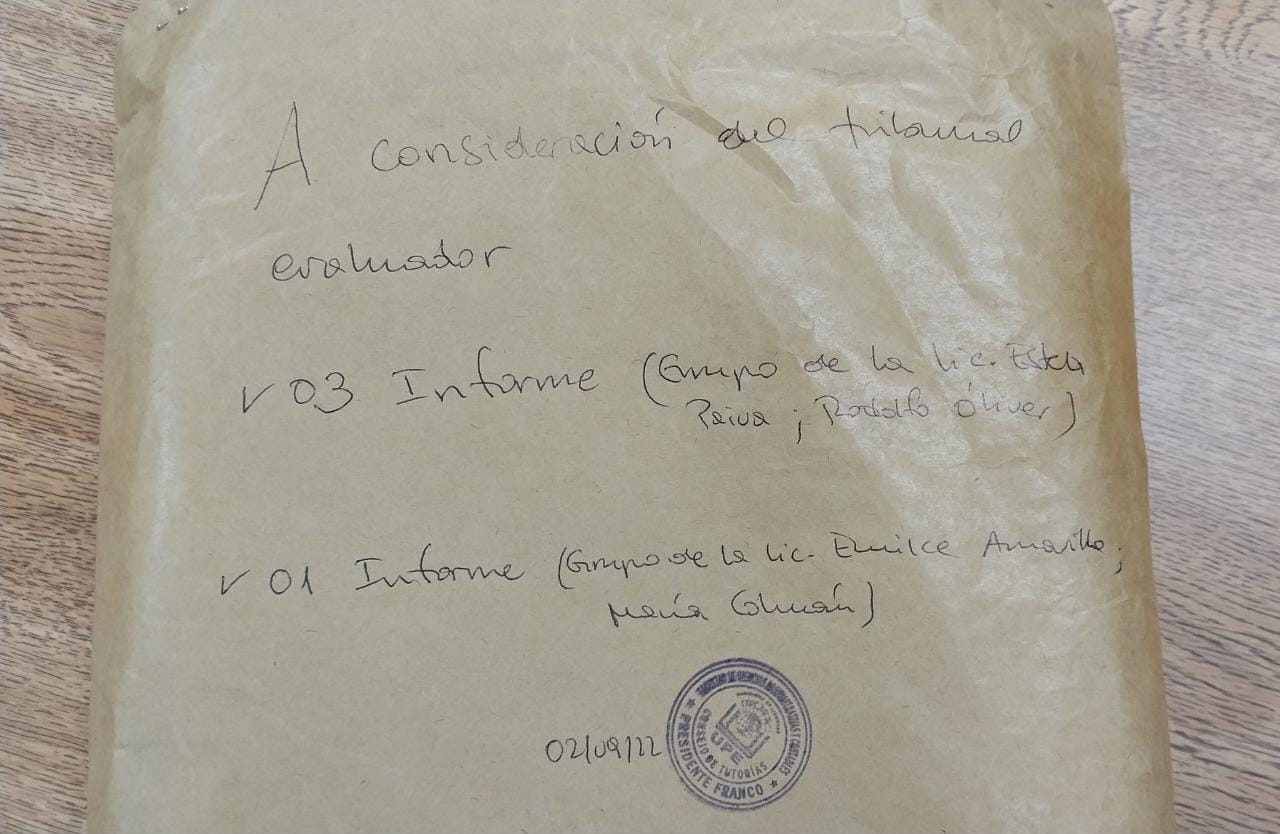 A consideración del tribunal
evaluador
✓ 03 Informe (Grupo de la Lic. Estela
Paiva ; Rodolfo Óliver)
✓ 01 Informe (Grupo de la Lic. Emilce Amarilla;
María Colmán)
02/09/22
FACULTAD DE CIENCIAS ADMINISTRATIVAS Y CONTABLES
UPE
CONSEJO DE TUTORÍAS
★ PRESIDENTE FRANCO ★